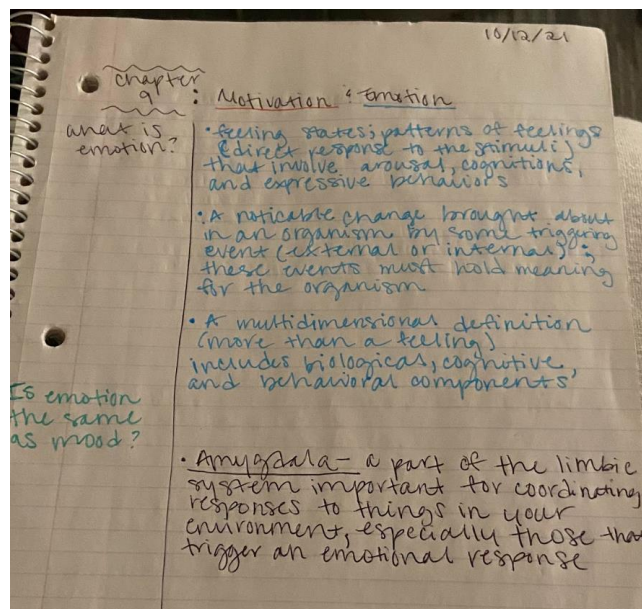 10/12/21
chapter
9 : Motivation & Emotion
what is
emotion?
• feeling states; patterns of feelings
(direct response to the stimuli)
that involve arousal, cognitions,
and expressive behaviors
• A noticable change brought about
in an organism by some triggering
event (external or internal);
these events must hold meaning
for the organism
• A multidimensional definition
(more than a feeling)
includes biological, cognitive,
and behavioral components
Is emotion
the same
as mood?
• Amygdala- a part of the limbic
system important for coordinating
responses to things in your
environment, especially those that
trigger an emotional response